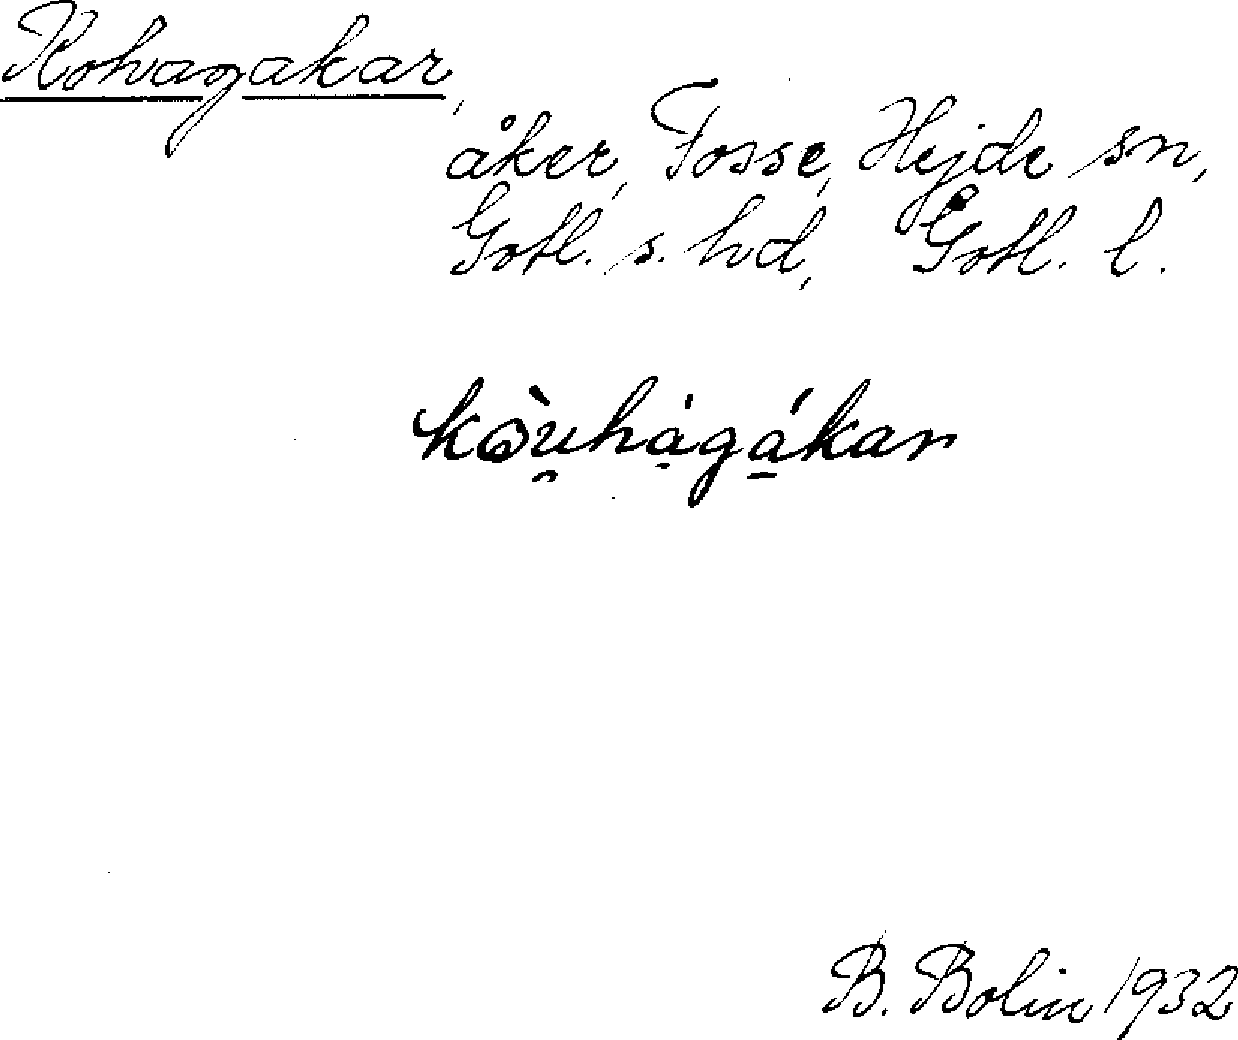 Kohagakar,
åker, Fosse, Hejde sn,
Gotl. s. hd, Gotl. l.
kòu̯hágákar
B. Bolin 1932